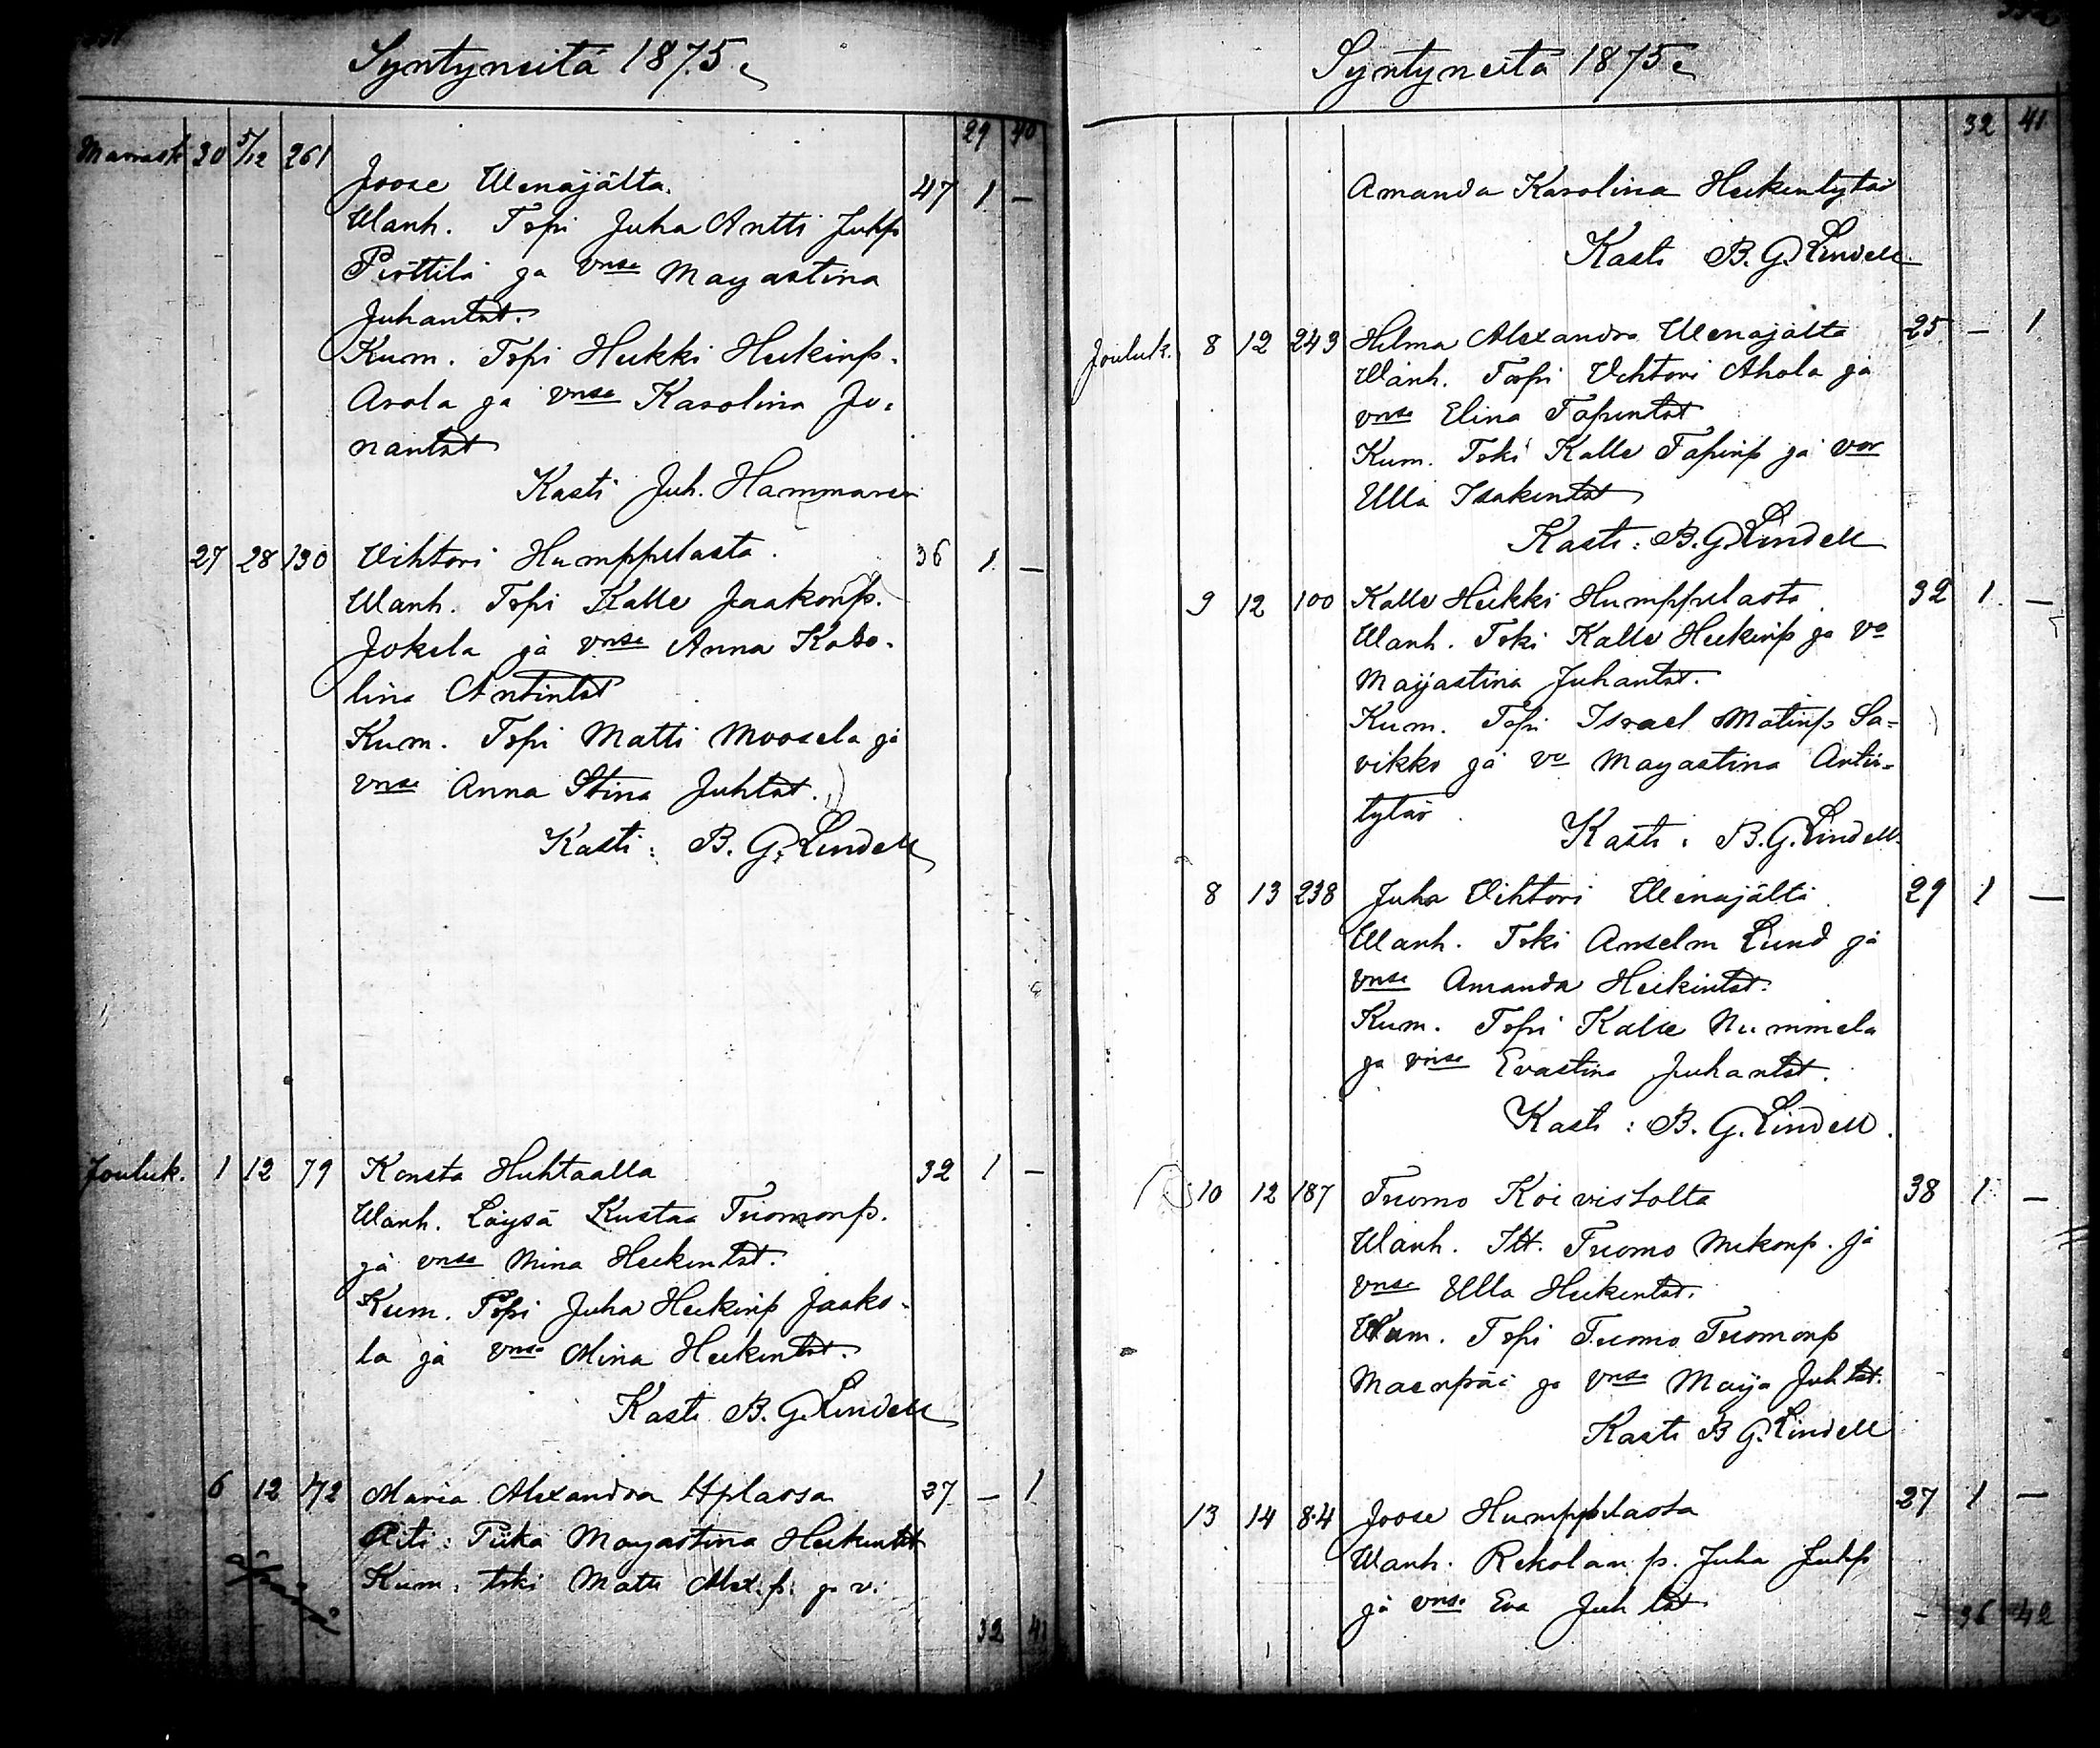 Syntyneitä 1875.
29 40
Marrask. 30 5/12 261
Joose Wenäjältä. 47 1 –
Wanh. Topi Juha Antti Juhp
Pirttilä ja vnsa Mayastina
Juhantst.
Kum. Topi Heikki Heikinp.
Arola ja vnsa Karolina Jo-
nantst
Kasti Juh. Hammaren
27 28 130 Vihtori Humppilasta. 36 1 –
Wanh. Topi Kalle Jaakonp.
Jokela jä vnsa Anna Karo-
lina Antintst
Kum. Topi Matti Moosela jä
vnsa Anna Stina Juhtst.
Kasti: B. G. Lindell
Jouluk. 1 12 79 Konsta Huhtaalla 32 1 –
Wanh. Löysä Kustaa Tuomonp.
jä vnsa Mina Heikintst.
Kum. Topi Juha Heikinp Jaako-
la jä vnsa Mina Heikintst.
Kasti B. G. Lindell
6 12 172 Maria Alexandra 37 – 1
Äiti: Piika Mayastina Heikintst
Kum. tski Matti Alex.p. ja v.
32 41
Syntyneitä 1875
32 41
Amanda Karolina Heikintytär
Kasti B. G. Lindell.
Jouluk. 8 12 243 Hilma Alexandra Wenäjältä 25 – 1
Wanh. Topi Vihtori Ahola jä
vnsa Elina Tapintst
Kum. Tski Kalle Tapinp jä var
Ulla Isakintst
Kasti: B. G. Lindell
9 12 100 Kalle Heikki Humppilasta 32 1 –
Wanh. Tski Kalle Heikinp ja vo
Mayastina Juhantst.
Kum. Topi Israel Matinp Sa-
vikko jä vo Mayastina Antin-
tytär
Kasti: B. G. Lindell.
8 13 238 Juha Vihtori Wenäjältä 29 1 –
Wanh. Tski Anselm Lund jä
vnsa Amanda Heikintst.
Kum. Topi Kalle Nummela
ja vnsa Evastina Juhantst.
Kasti: B. G. Lindell.
10 12 187 Tuomo Koivistolta 38 1 –
Wanh. Itt. Tuomo Mikonp. jä
vnsa Ulla Heikintst.
Kum. Topi Tuomo Tuomonp
Maenpää ja vnsa Maija Juhtst.
Kasti B G. Lindell
13 14 84 Joose Humppilasta 27 1 –
Wanh. Rekolan p. Juha Juhp
jä vnsa Eva Juhtst
– 36 42